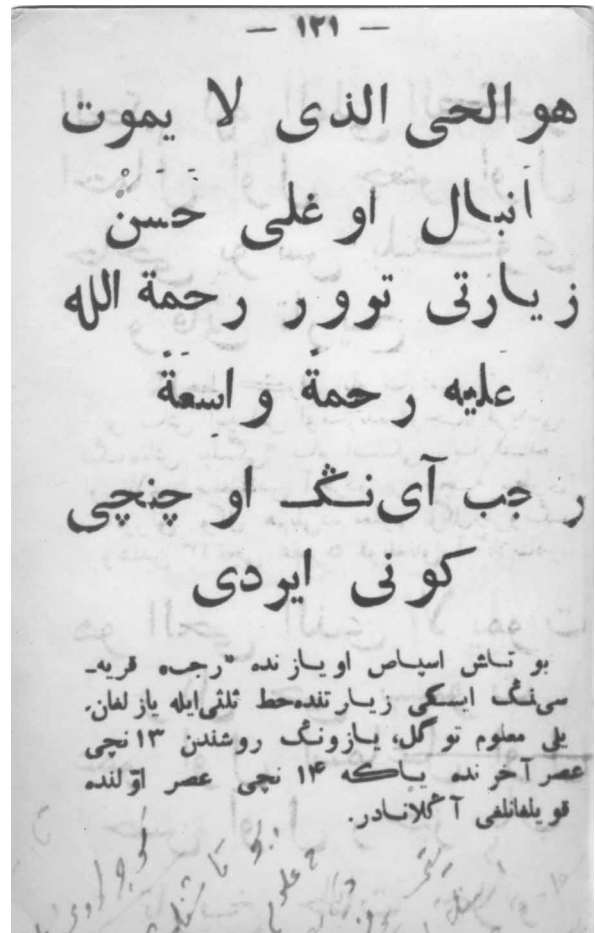 — ١٢١ —
هو الحى الذى لا يموت
اَنبال اوغلى حَسَنْ
زيارتى توور رحمة الله
عَليه رحمةً واسِعَةً
رجب آى ننڭ اوچنچى
كونى ايردى
بو تاش اسپاص اويازنده "رجب" قريه‌ـ
سىننڭ ايسكى زيارتنده خط ثلثى ايله يازلغان.
يلى معلوم توگل، يازونڭ روشندن ١٣ نچى
عصر آخرنده ياكه ١٤ نچى عصر اوّلنده
قويلغانلغى آڭلانادر.